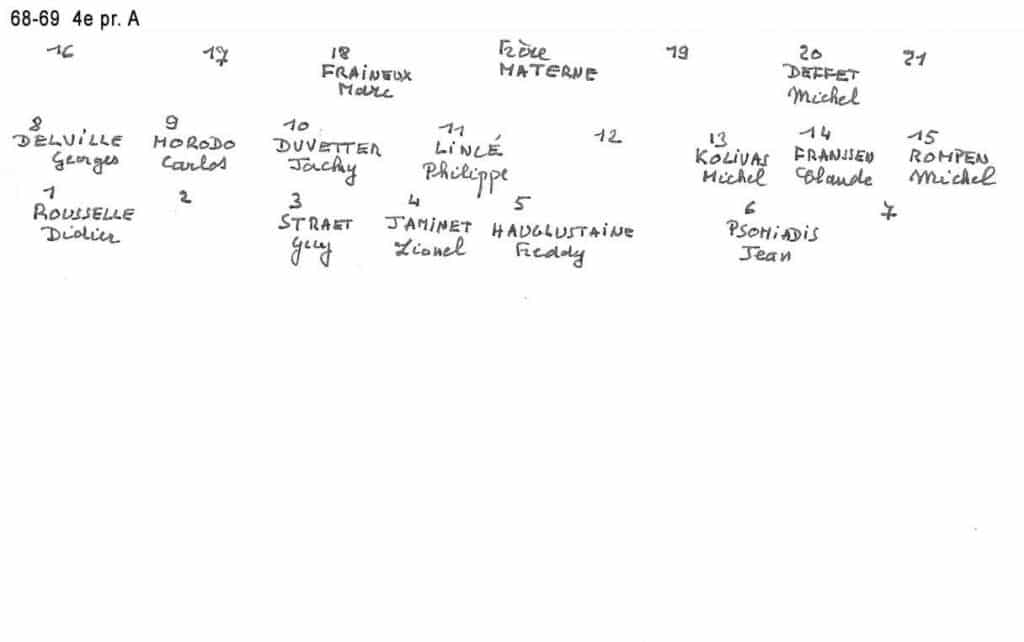 68-69 4e pr. A
16 17 18 Frère 19 20 21
FRAINEUX MATERNE DEFFET
Marc Michel
8 9 10 11 12 13 14 15
DELVILLE MORODO DUVETTER LINCÉ KOLIVAS FRANSSEN ROMPEN
Georges Carlos Jacky Philippe Michel Claude Michel
1 2 3 4 5 6 7
ROUSSELLE STRAET JAMINET HAUGLUSTAINE PSOMIADIS
Didier Guy Lionel Freddy Jean